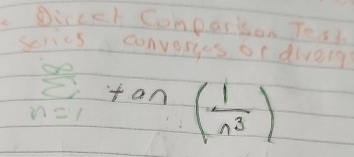 Direct Comparison Test
series converges or diverg
∞
Σ tan (1/n³)
n=1